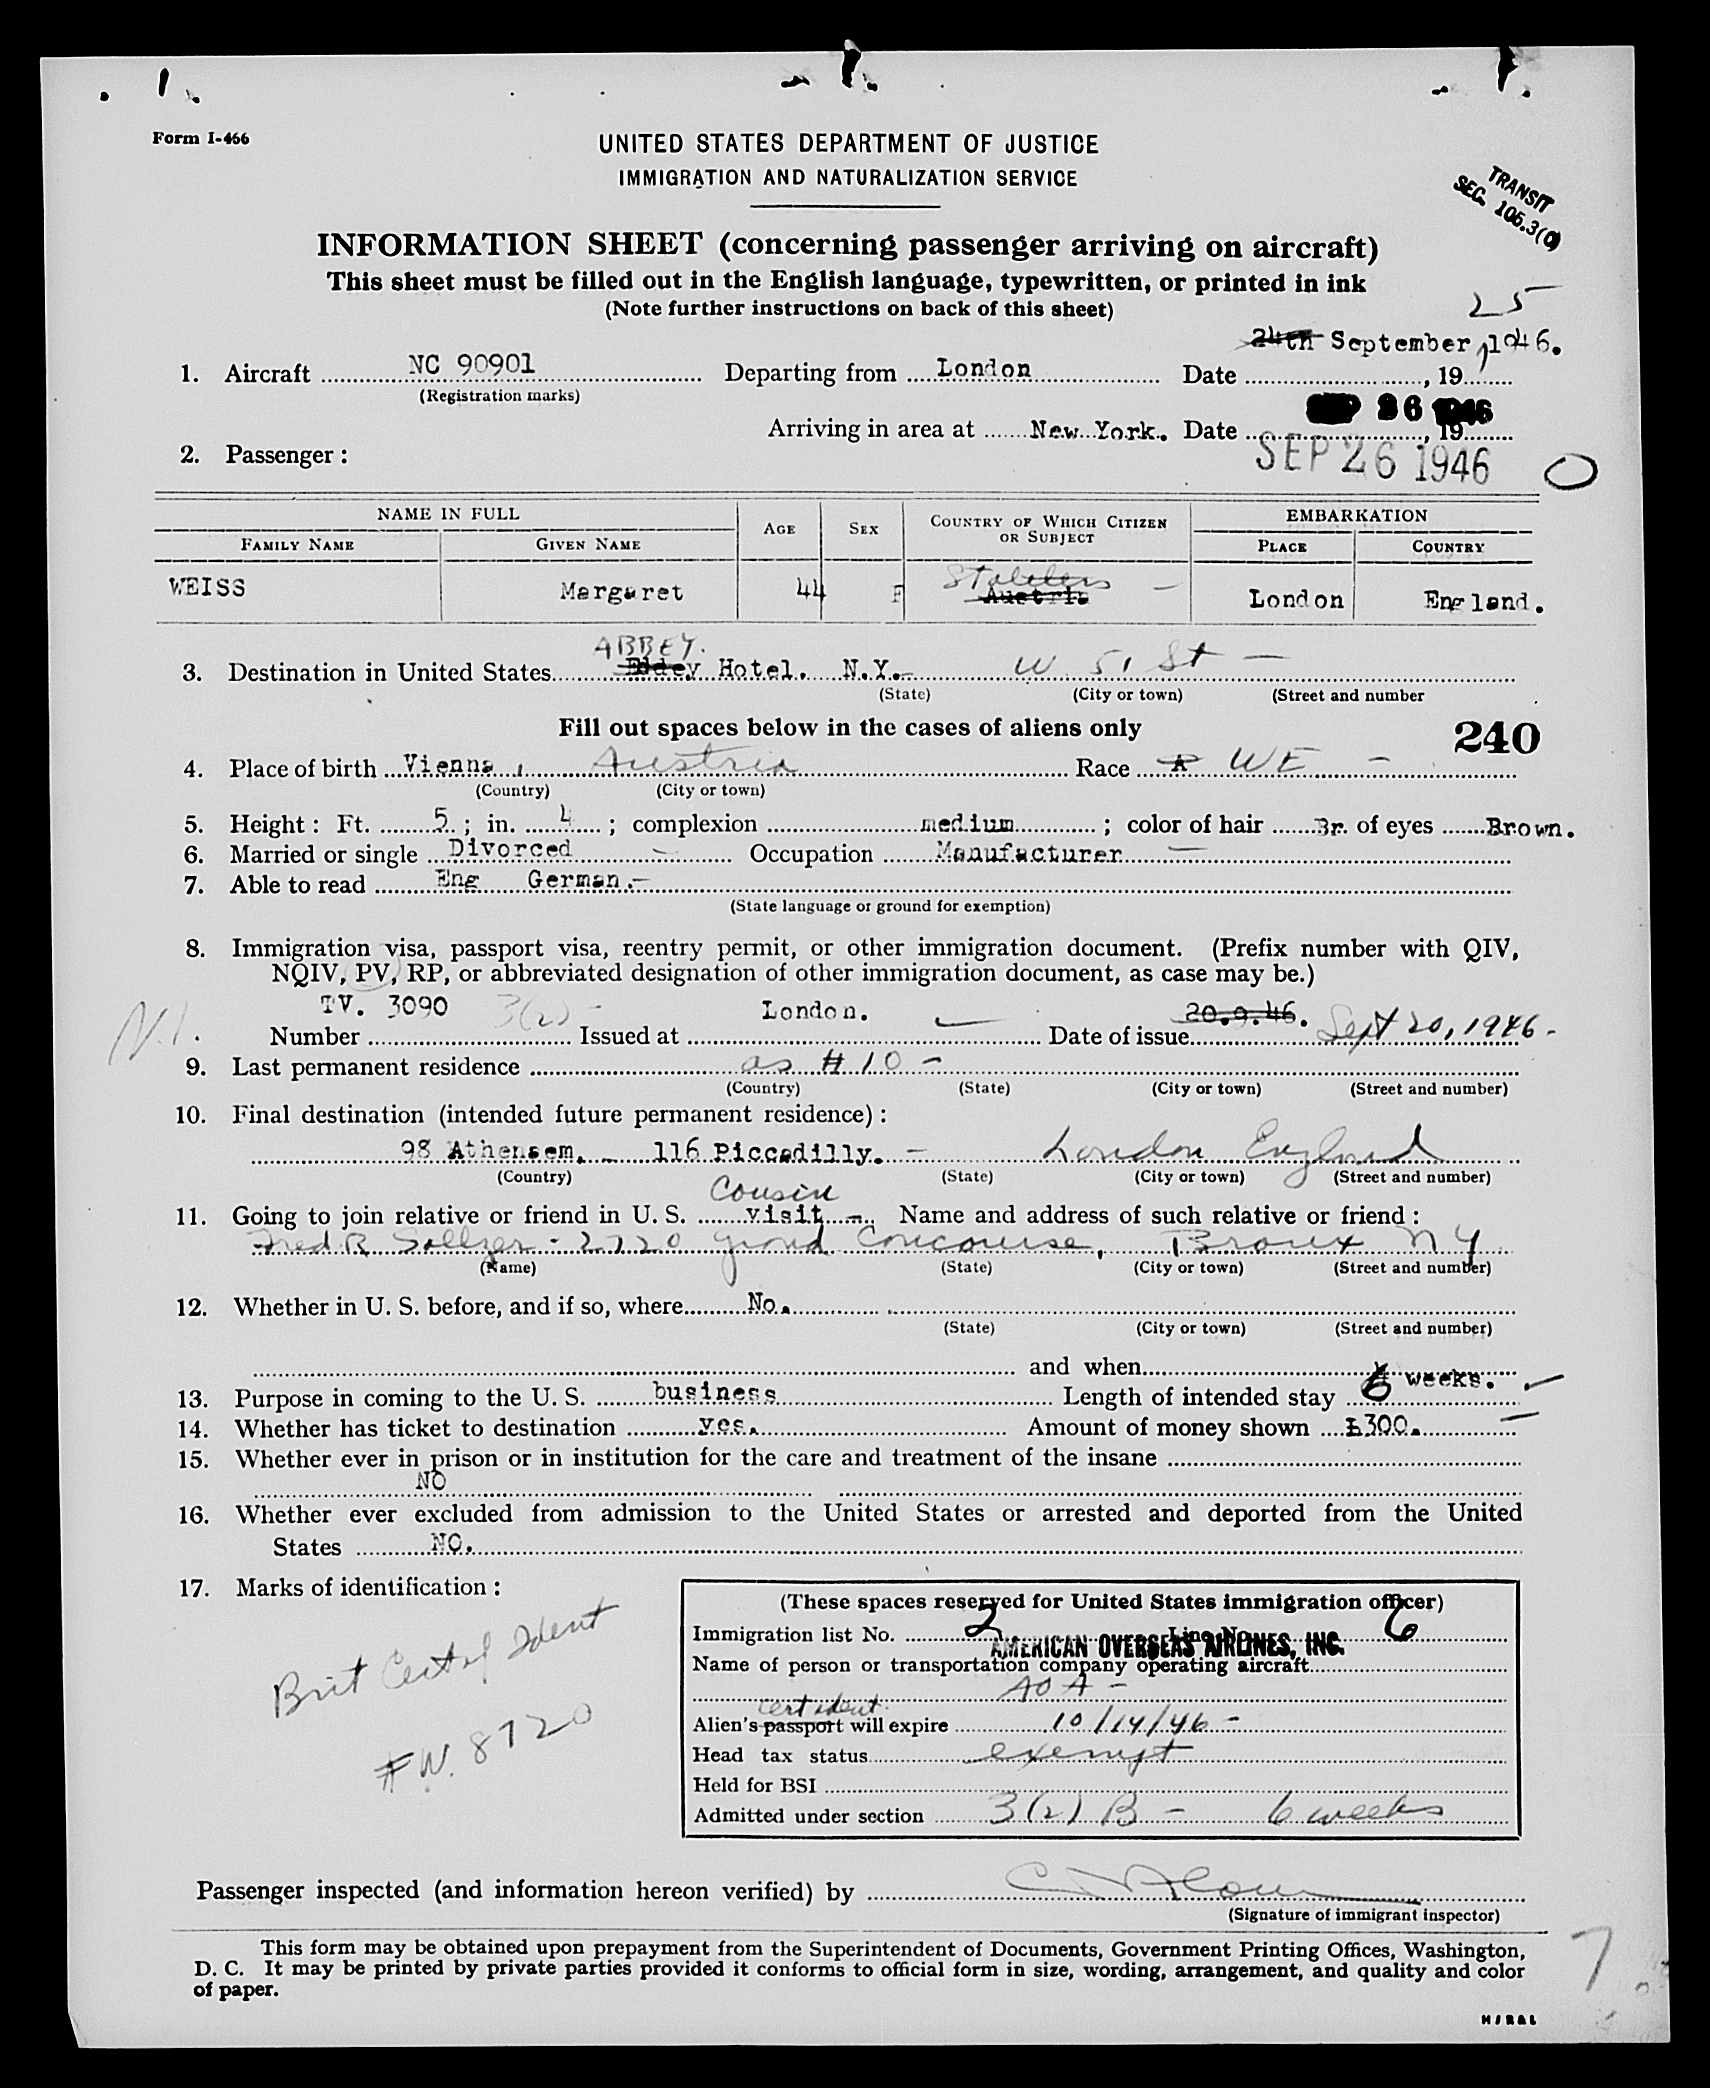 Form I-466
UNITED STATES DEPARTMENT OF JUSTICE
IMMIGRATION AND NATURALIZATION SERVICE
TRANSIT
SEC. 105.3(c)
INFORMATION SHEET (concerning passenger arriving on aircraft)
This sheet must be filled out in the English language, typewritten, or printed in ink
(Note further instructions on back of this sheet)
25
24th September, 1946.
1. Aircraft NC 90901 Departing from London Date , 19
(Registration marks)
26 1946
Arriving in area at New York. Date , 19
2. Passenger:
SEP 26 1946
NAME IN FULL AGE SEX COUNTRY OF WHICH CITIZEN OR SUBJECT EMBARKATION
FAMILY NAME GIVEN NAME PLACE COUNTRY
Stateless
WEISS Margaret 44 F Austria London England.
ABBEY.
3. Destination in United States Hotel. N.Y. W 51 St
(State) (City or town) (Street and number
Fill out spaces below in the cases of aliens only
240
4. Place of birth Vienna, Austria Race WE
(Country) (City or town)
5. Height: Ft. 5 ; in. 4 ; complexion medium ; color of hair Br. of eyes Brown.
6. Married or single Divorced Occupation Manufacturer
7. Able to read Eng German.
(State language or ground for exemption)
8. Immigration visa, passport visa, reentry permit, or other immigration document. (Prefix number with QIV,
NQIV, PV, RP, or abbreviated designation of other immigration document, as case may be.)
TV. 3090 3(2) London. 20.9.46.
Number Issued at Date of issue Sept 20, 1946
9. Last permanent residence as # 10
(Country) (State) (City or town) (Street and number)
10. Final destination (intended future permanent residence):
98 Athensem. 116 Piccadilly. London England
(Country) (State) (City or town) (Street and number)
Cousin
11. Going to join relative or friend in U. S. visit Name and address of such relative or friend:
Fred R 2720 Grand Concourse, Bronx NY
(Name) (State) (City or town) (Street and number)
12. Whether in U. S. before, and if so, where No.
(State) (City or town) (Street and number)
and when
13. Purpose in coming to the U. S. business Length of intended stay 6 weeks.
14. Whether has ticket to destination yes. Amount of money shown £300.
15. Whether ever in prison or in institution for the care and treatment of the insane
NO
16. Whether ever excluded from admission to the United States or arrested and deported from the United
States NO.
17. Marks of identification:
Brit Cert of Ident
#W. 8720
(These spaces reserved for United States immigration officer)
Immigration list No. 2 Line No. 6
AMERICAN OVERSEAS AIRLINES, INC.
Name of person or transportation company operating aircraft
AOA
cert ident
Alien's passport will expire 10/14/46
Head tax status exempt
Held for BSI
Admitted under section 3(2) B - 6 weeks
Passenger inspected (and information hereon verified) by
(Signature of immigrant inspector)
This form may be obtained upon prepayment from the Superintendent of Documents, Government Printing Offices, Washington,
D. C. It may be printed by private parties provided it conforms to official form in size, wording, arrangement, and quality and color
of paper.
7